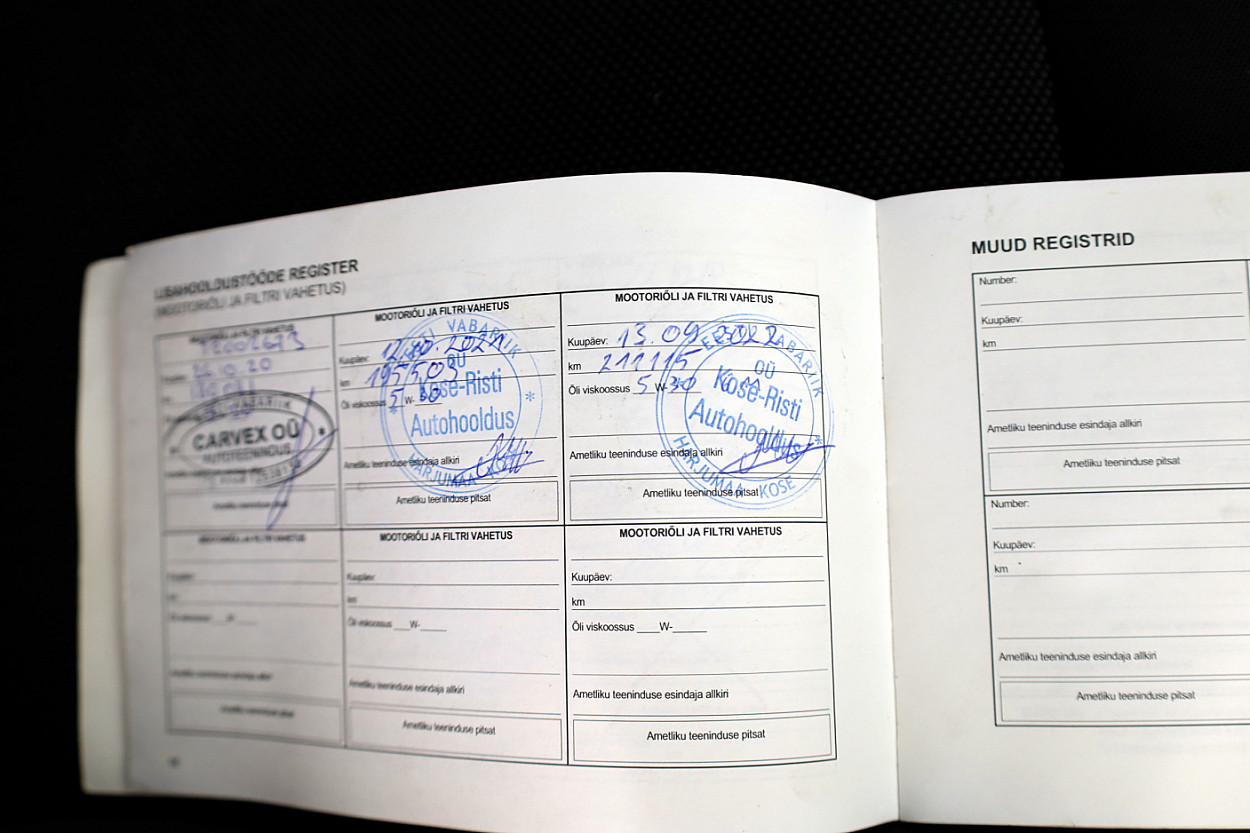 LISAHOOLDUSTÖÖDE REGISTER
(MOOTORIÕLI JA FILTRI VAHETUS)
MOOTORIÕLI JA FILTRI VAHETUS
CARVEX OÜ
AUTOTEENINDUS
MOOTORIÕLI JA FILTRI VAHETUS
Kuupäev: 12.10.2021
km 195503
Õli viskoossus 5 W- 30
EESTI VABARIIK
OÜ
Kose-Risti
Autohooldus
HARJUMAA
Ametliku teeninduse esindaja allkiri
Ametliku teeninduse pitsat
MOOTORIÕLI JA FILTRI VAHETUS
Kuupäev: 13.09.2022
km 211115
Õli viskoossus 5 W-30
EESTI VABARIIK
OÜ
Kose-Risti
Autohooldus
HARJUMAA KOSE
Ametliku teeninduse esindaja allkiri
Ametliku teeninduse pitsat
MOOTORIÕLI JA FILTRI VAHETUS
MOOTORIÕLI JA FILTRI VAHETUS
Kuupäev:
km
Õli viskoossus ___W-_____
Ametliku teeninduse esindaja allkiri
Ametliku teeninduse pitsat
MOOTORIÕLI JA FILTRI VAHETUS
Kuupäev:
km
Õli viskoossus ____W-______
Ametliku teeninduse esindaja allkiri
Ametliku teeninduse pitsat
MUUD REGISTRID
Number:
Kuupäev:
km
Ametliku teeninduse esindaja allkiri
Ametliku teeninduse pitsat
Number:
Kuupäev:
km
Ametliku teeninduse esindaja allkiri
Ametliku teeninduse pitsat